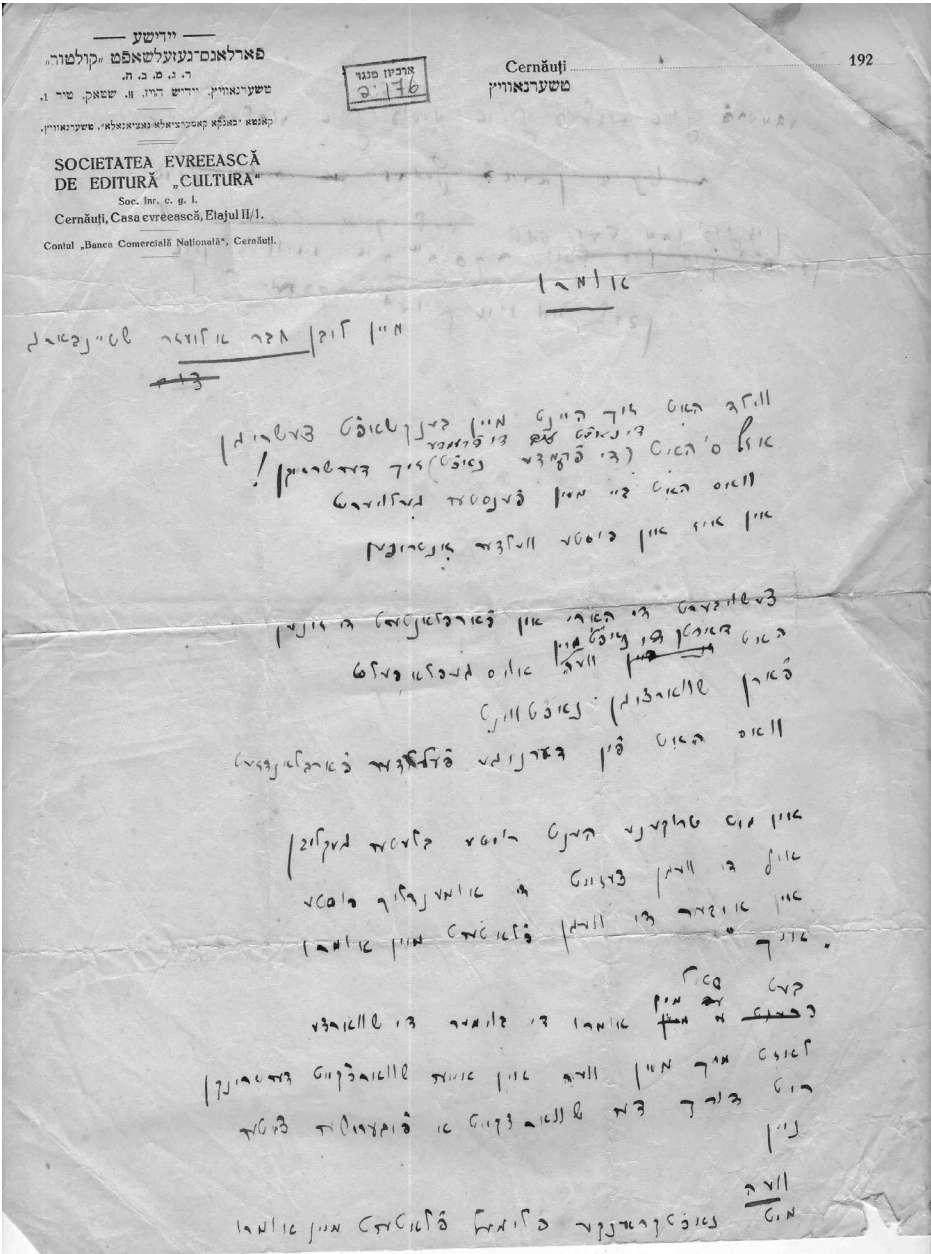 — יידישע —
פארלאגס־געזעלשאפט „קולטור"
ר. ג. מ. ב. ה.
טשערנאוויץ, יידיש הויז, II. שטאק, טיר 1.
קאנטא „באנקא קאמערציאלא נאציאנאלא", טשערנאוויץ.
SOCIETATEA EVREEASCĂ
DE EDITURĂ „CULTURA"
Soc. înr. c. g. l.
Cernăuți, Casa evreească, Etajul II/1.
Contul „Banca Comercială Națională", Cernăuți.
ארכיון מנגר
Cernăuți 192
טשערנאוויץ
אומרו
מיין ליבן חבר אליעזר שטיינבארג
ווילד האט זיך היינט מיין בענקשאפט צעשריגן
די נאכט די פרעמדע
אזש ס'האט (די נאכט) זיך דערשראקן!
וואס האט ביי מיין פענסטער געלויערט
און איז אין פיסטע וועלדער אנטרינען
צעשויבערט די האר און פארפלאנטערט די זינען
האט דארטן די נאכט מיין וויי אויס געפלאפלט
פארן שווארצן נאכטווינט
וואס האט אין דערנער פעלדער פארבלאנדזשעט
און מיט טרוקענע הענט רויטע בלעטער געקליבן
אויף די וועגן צעזייט די אומענדליך רויטע
און איבער די וועגן פלאטערט מיין אומרו
בעט
אומרו די בלימער די שווארצע
לאזט מיך מיין וויי אין אייער שווארצקייט דערטרינקען
רויט דורך דער שווארצקייט א פיבערישער ציטער
ניין
וויי
מיט נאכטקראנקע פליגל פלאטערט מיין אומרו